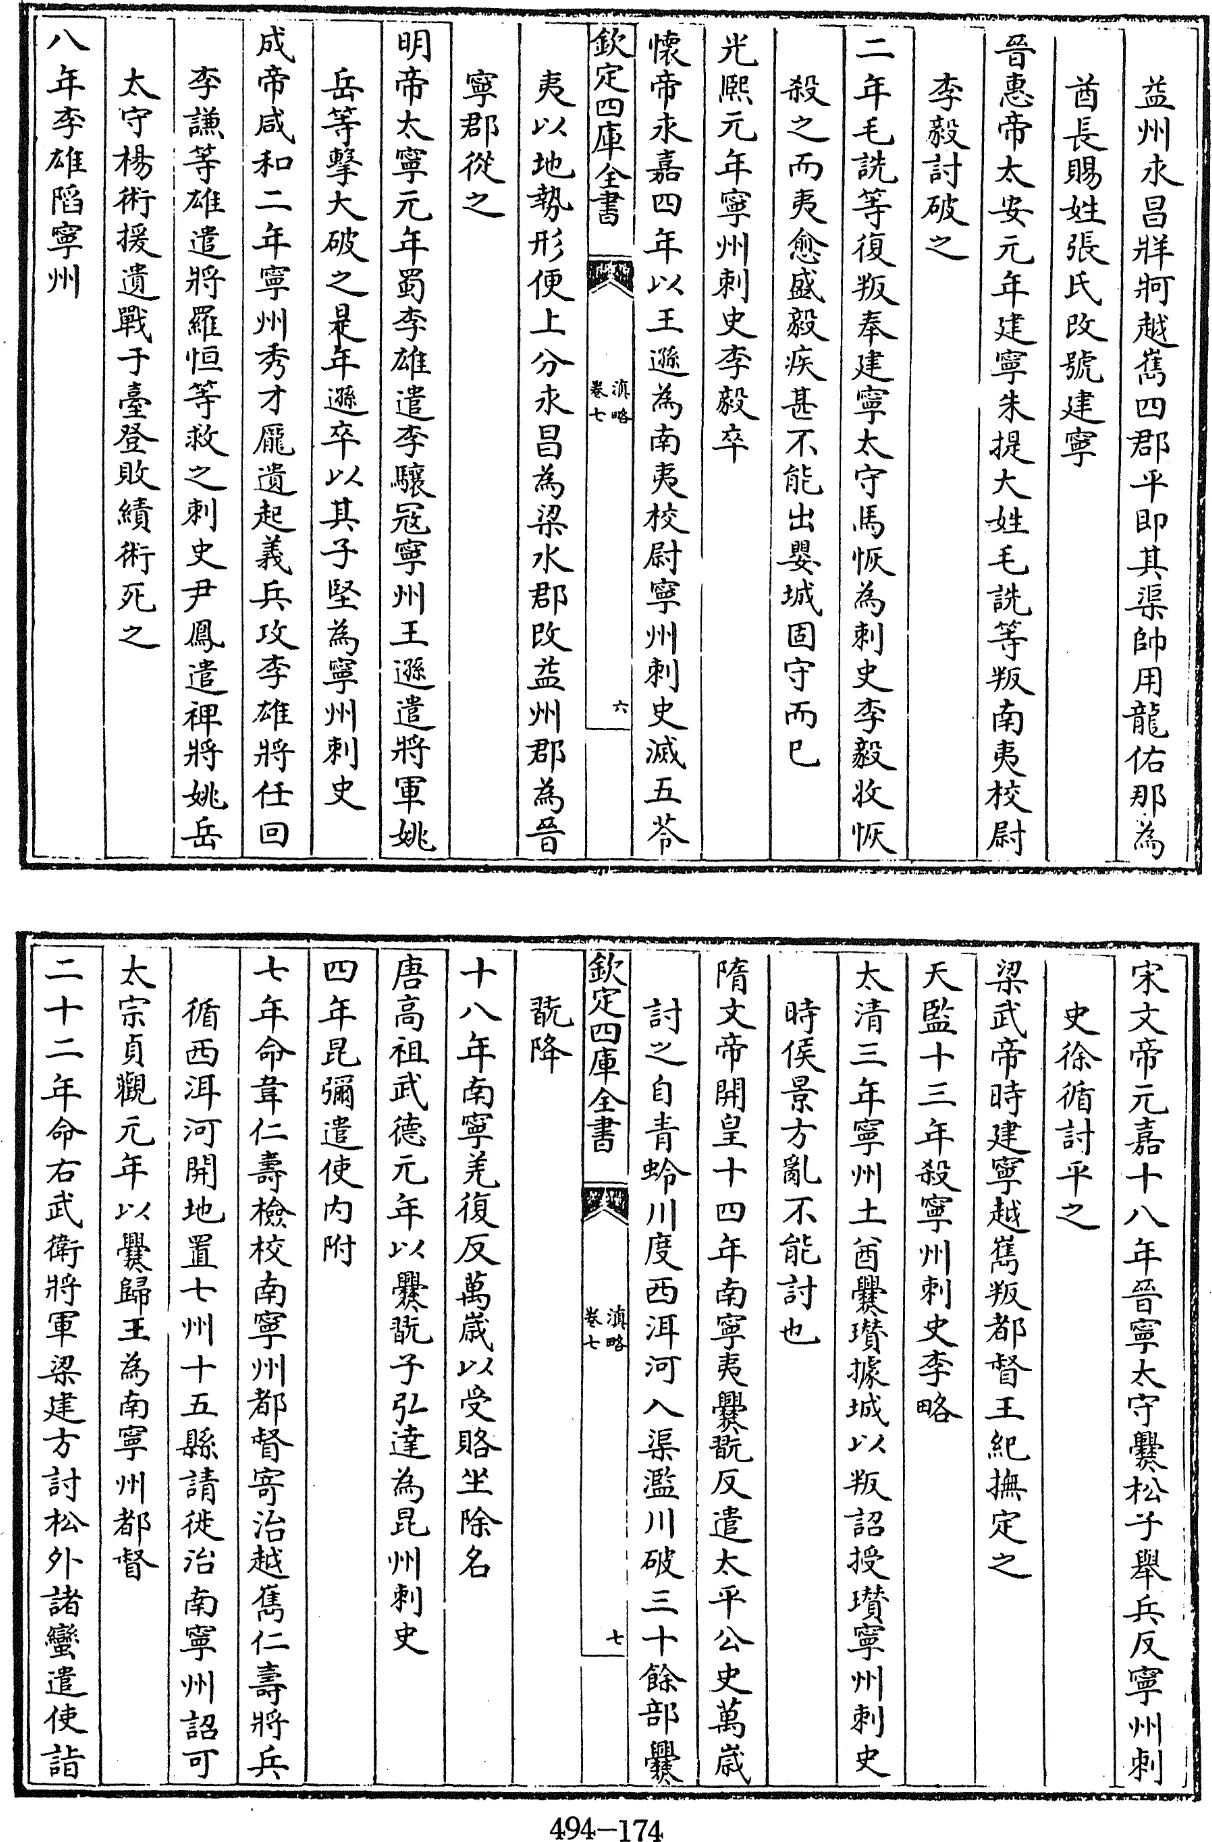 益州永昌牂牁越嶲四郡平即其渠帥用龍佑那為
酋長賜姓張氏改號建寧
晉惠帝太安元年建寧朱提大姓毛詵等叛南夷校尉
李毅討破之
二年毛詵等復叛奉建寧太守馬恢為刺史李毅收恢
殺之而夷愈盛毅疾甚不能出嬰城固守而已
光熙元年寧州刺史李毅卒
懷帝永嘉四年以王遜為南夷校尉寧州刺史滅五苓
欽定四庫全書
滇略
卷七
六
夷以地勢形便上分永昌為梁水郡改益州郡為晉
寧郡從之
明帝太寧元年蜀李雄遣李驤冦寧州王遜遣將軍姚
岳等擊大破之是年遜卒以其子堅為寧州刺史
成帝咸和二年寧州秀才龎遺起義兵攻李雄將任回
李謙等雄遣將羅恒等救之刺史尹鳳遣裨將姚岳
太守楊術援遺戰于臺登敗績術死之
八年李雄陷寧州
宋文帝元嘉十八年晉寧太守爨松子舉兵反寧州刺
史徐循討平之
梁武帝時建寧越嶲叛都督王紀撫定之
天監十三年殺寧州刺史李略
太清三年寧州土酋爨瓚據城以叛詔授瓚寧州刺史
時侯景方亂不能討也
隋文帝開皇十四年南寧夷爨翫反遣太平公史萬歲
討之自青蛉川度西洱河入渠濫川破三十餘部爨
欽定四庫全書
滇略
卷七
七
翫降
十八年南寧羌復反萬歲以受賂坐除名
唐高祖武德元年以爨翫子弘達為昆州刺史
四年昆彌遣使内附
七年命韋仁壽檢校南寧州都督寄治越嶲仁壽將兵
循西洱河開地置七州十五縣請徙治南寧州詔可
太宗貞觀元年以爨歸王為南寧州都督
二十二年命右武衛將軍梁建方討松外諸蠻遣使詣
494-174